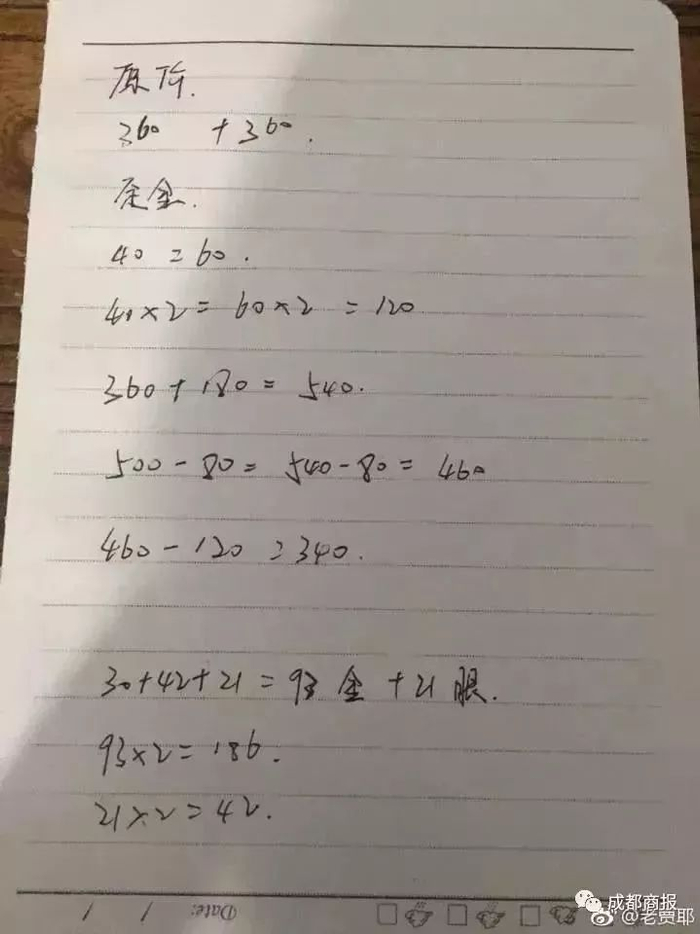 原价.
360 +360.
定金.
40 = 60.
40×2 = 60×2 = 120
360 + 180 = 540.
500 - 80 = 540 - 80 = 460
460 - 120 = 340.
30+42+21 = 93 金 +21 眼.
93×2 = 186.
21×2 = 42.
Date: / /
成都商报
@老贾耶